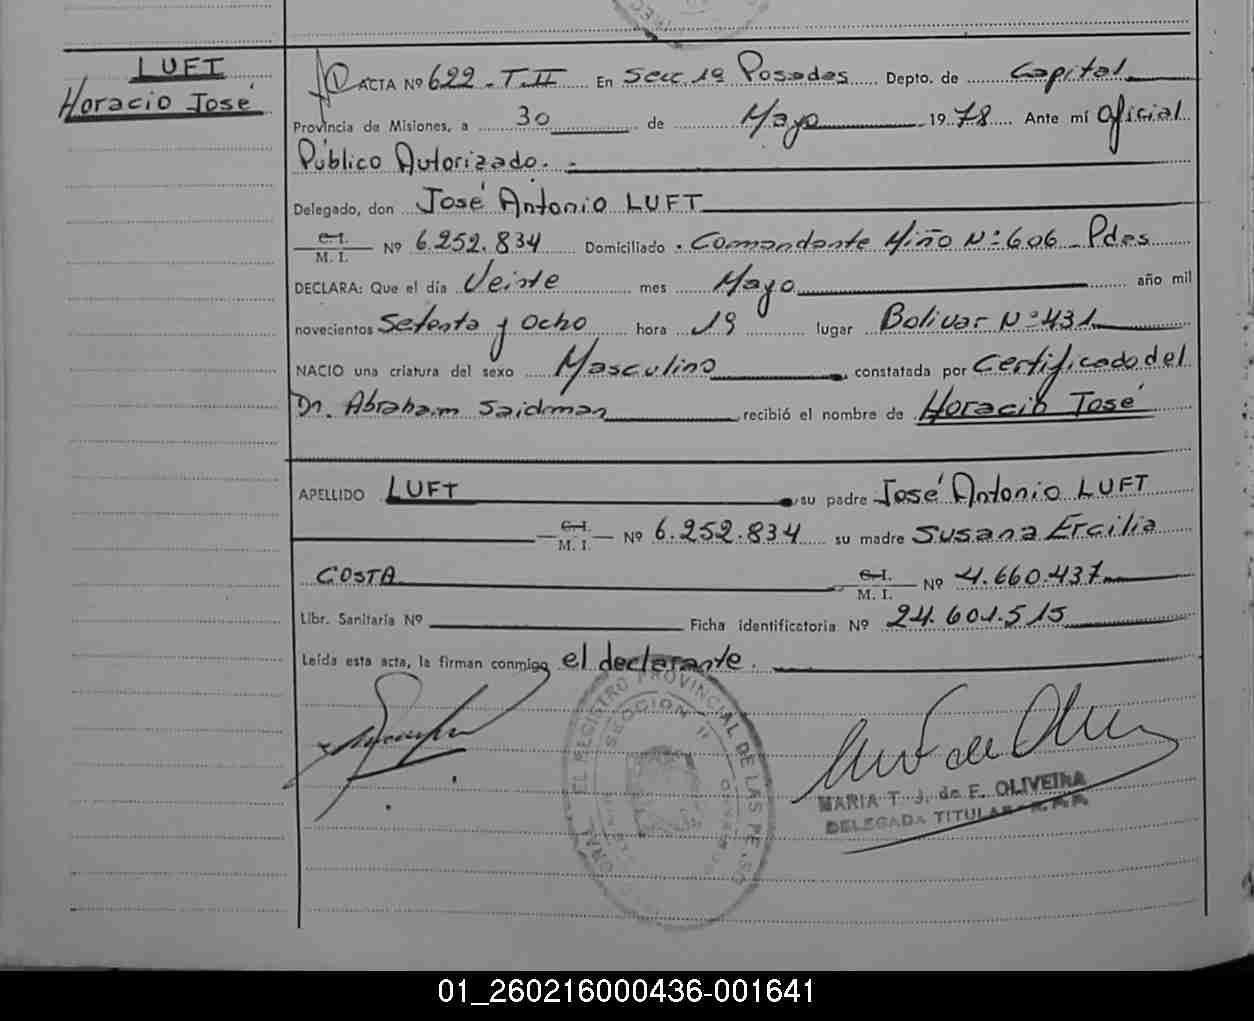 LUFT
Horacio José
ACTA Nº 622 - T. II En Secc 1º Posadas Depto. de Capital
Provincia de Misiones, a 30 de Mayo 1978 Ante mí Oficial
Público Autorizado. -
Delegado, don José Antonio LUFT
C. I. M. I. Nº 6.252.834 Domiciliado Comandante Miño Nº 606 - Pdas
DECLARA: Que el día Veinte mes Mayo año mil
novecientos Setenta y Ocho hora 19 lugar Bolivar Nº 431
NACIO una criatura del sexo Masculino constatada por Certificado del
Dr. Abraham Saidman recibió el nombre de Horacio José
APELLIDO LUFT su padre José Antonio LUFT
C. I. M. I. Nº 6.252.834 su madre Susana Ercilia
COSTA C. I. M. I. Nº 4.660.437
Libr. Sanitaria Nº Ficha identificatoria Nº 24.601.515
Leída esta acta, la firman conmigo el declarante.
EL REGISTRO PROVINCIAL DE LAS PE
SECCION
MARIA T. J. de F. OLIVEIRA
DELEGADA TITULAR
01_260216000436-001641